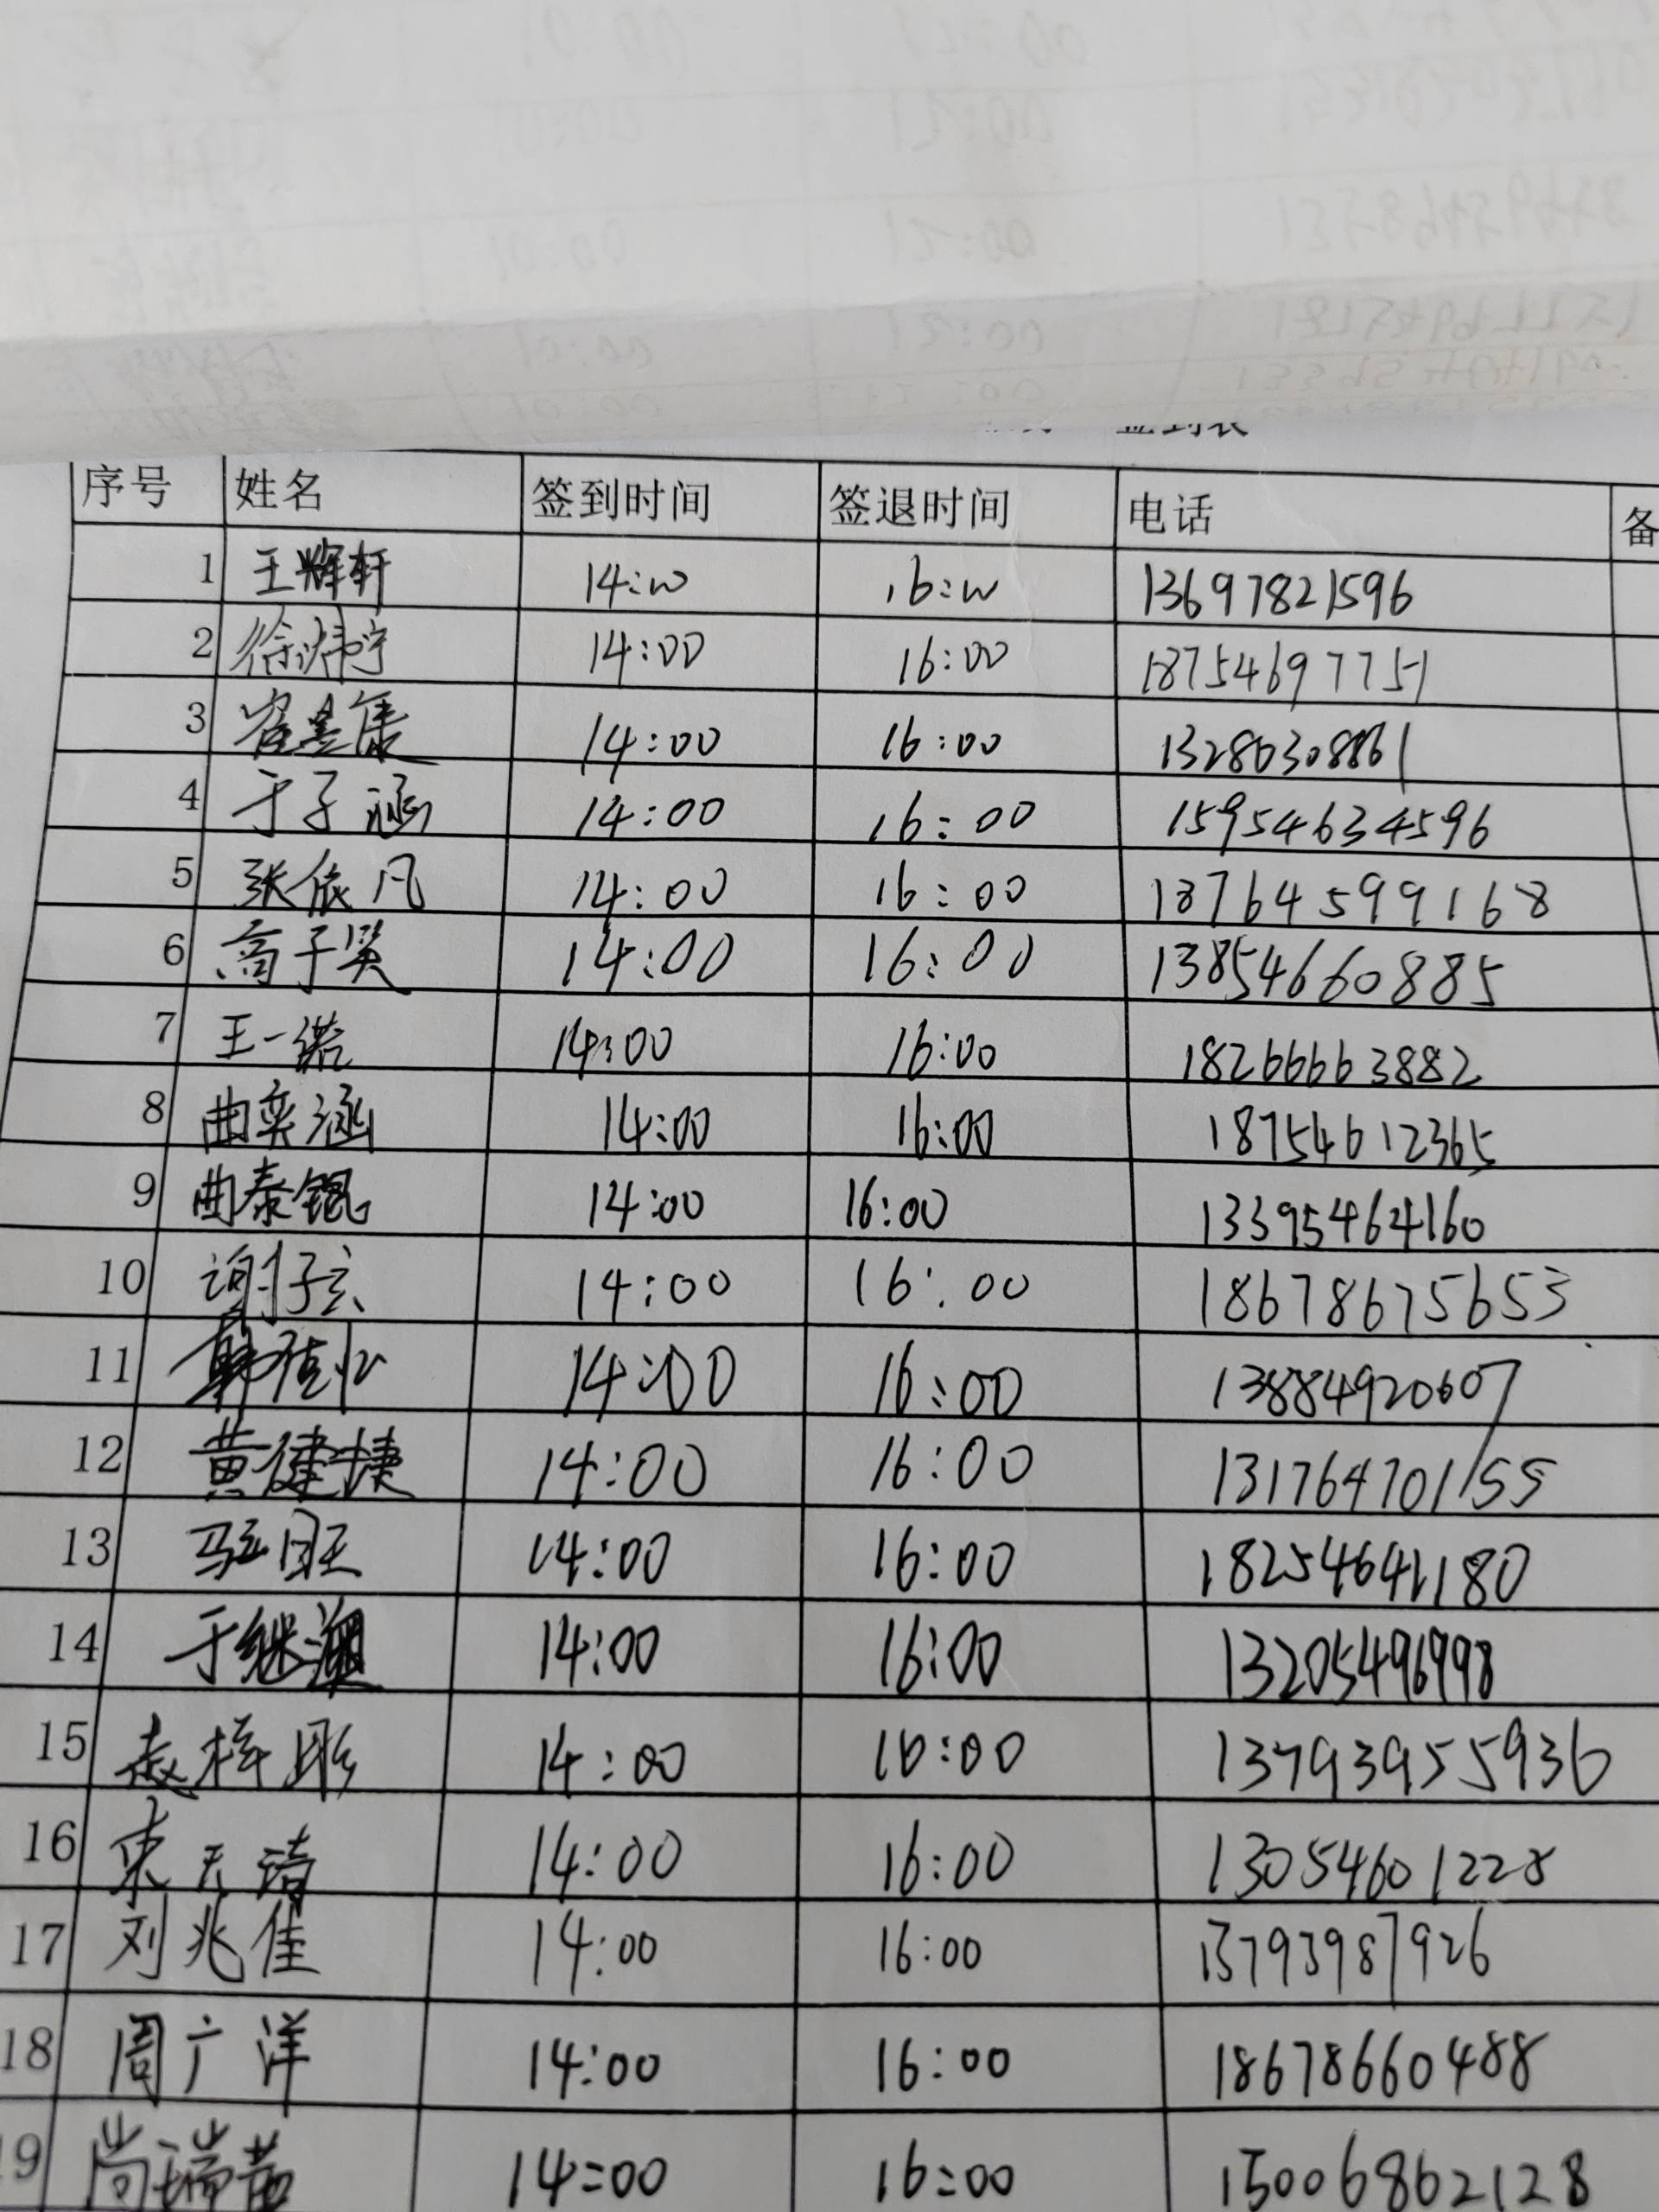 签到表
序号 姓名 签到时间 签退时间 电话 备
1 王辉轩 14:00 16:00 13697821596
2 徐炜宁 14:00 16:00 18754697751
3 14:00 16:00 13280308861
4 于子涵 14:00 16:00 15954634596
5 张依凡 14:00 16:00 18764599168
6 商子昊 14:00 16:00 13854660885
7 王一诺 14:00 16:00 18266663882
8 曲奕涵 14:00 16:00 18754612365
9 曲泰锟 14:00 16:00 13395464160
10 谢子玄 14:00 16:00 18678675653
11 14:00 16:00 13884920607
12 黄建捷 14:00 16:00 13176470155
13 14:00 16:00 18254641180
14 于继澳 14:00 16:00 13205496998
15 赵梓彤 14:00 16:00 13793955936
16 14:00 16:00 13054601228
17 刘兆佳 14:00 16:00 13793987926
18 周广洋 14:00 16:00 18678660488
19 尚瑞茜 14:00 16:00 15006862128